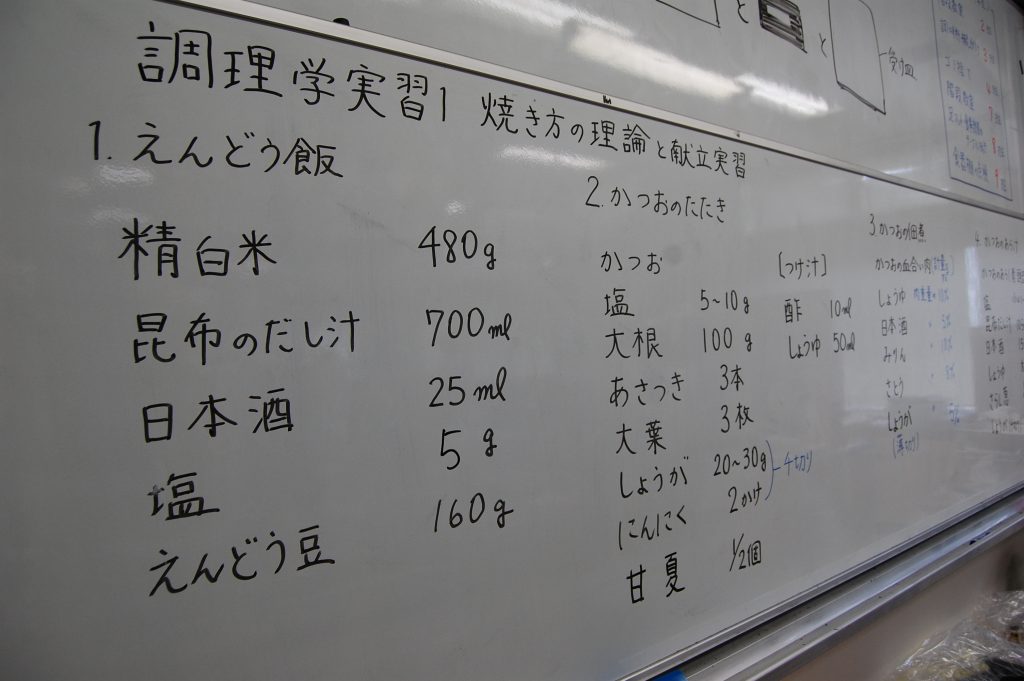 調理学実習1 焼き方の理論と献立実習
1. えんどう飯
精白米 480g
昆布のだし汁 700ml
日本酒 25ml
塩 5g
えんどう豆 160g
2. かつおのたたき
かつお
塩 5~10g
大根 100g
あさつき 3本
大葉 3枚
しょうが 20~30g
にんにく 2かけ
千切り
甘夏 1/2個
[つけ汁]
酢 10ml
しょうゆ 50ml
3. かつおの佃煮
かつおの血合い肉
しょうゆ
日本酒
みりん
さとう
しょうが
(薄切り)
4. かつおのあらけ
塩
昆布だし汁
日本酒
しょうゆ
と
と
受け皿